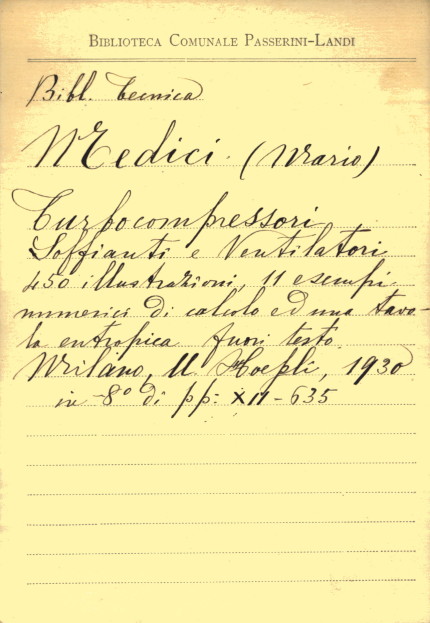 BIBLIOTECA COMUNALE PASSERINI-LANDI
Bibl. Tecnica
Medici (Mario)
Turbocompressori
Soffianti e Ventilatori
450 illustrazioni, 11 esempi
numerici di calcolo ed una tavo-
la entropica fuori testo.
Milano, U. Hoepli, 1930
in -8º di pp. XII-635